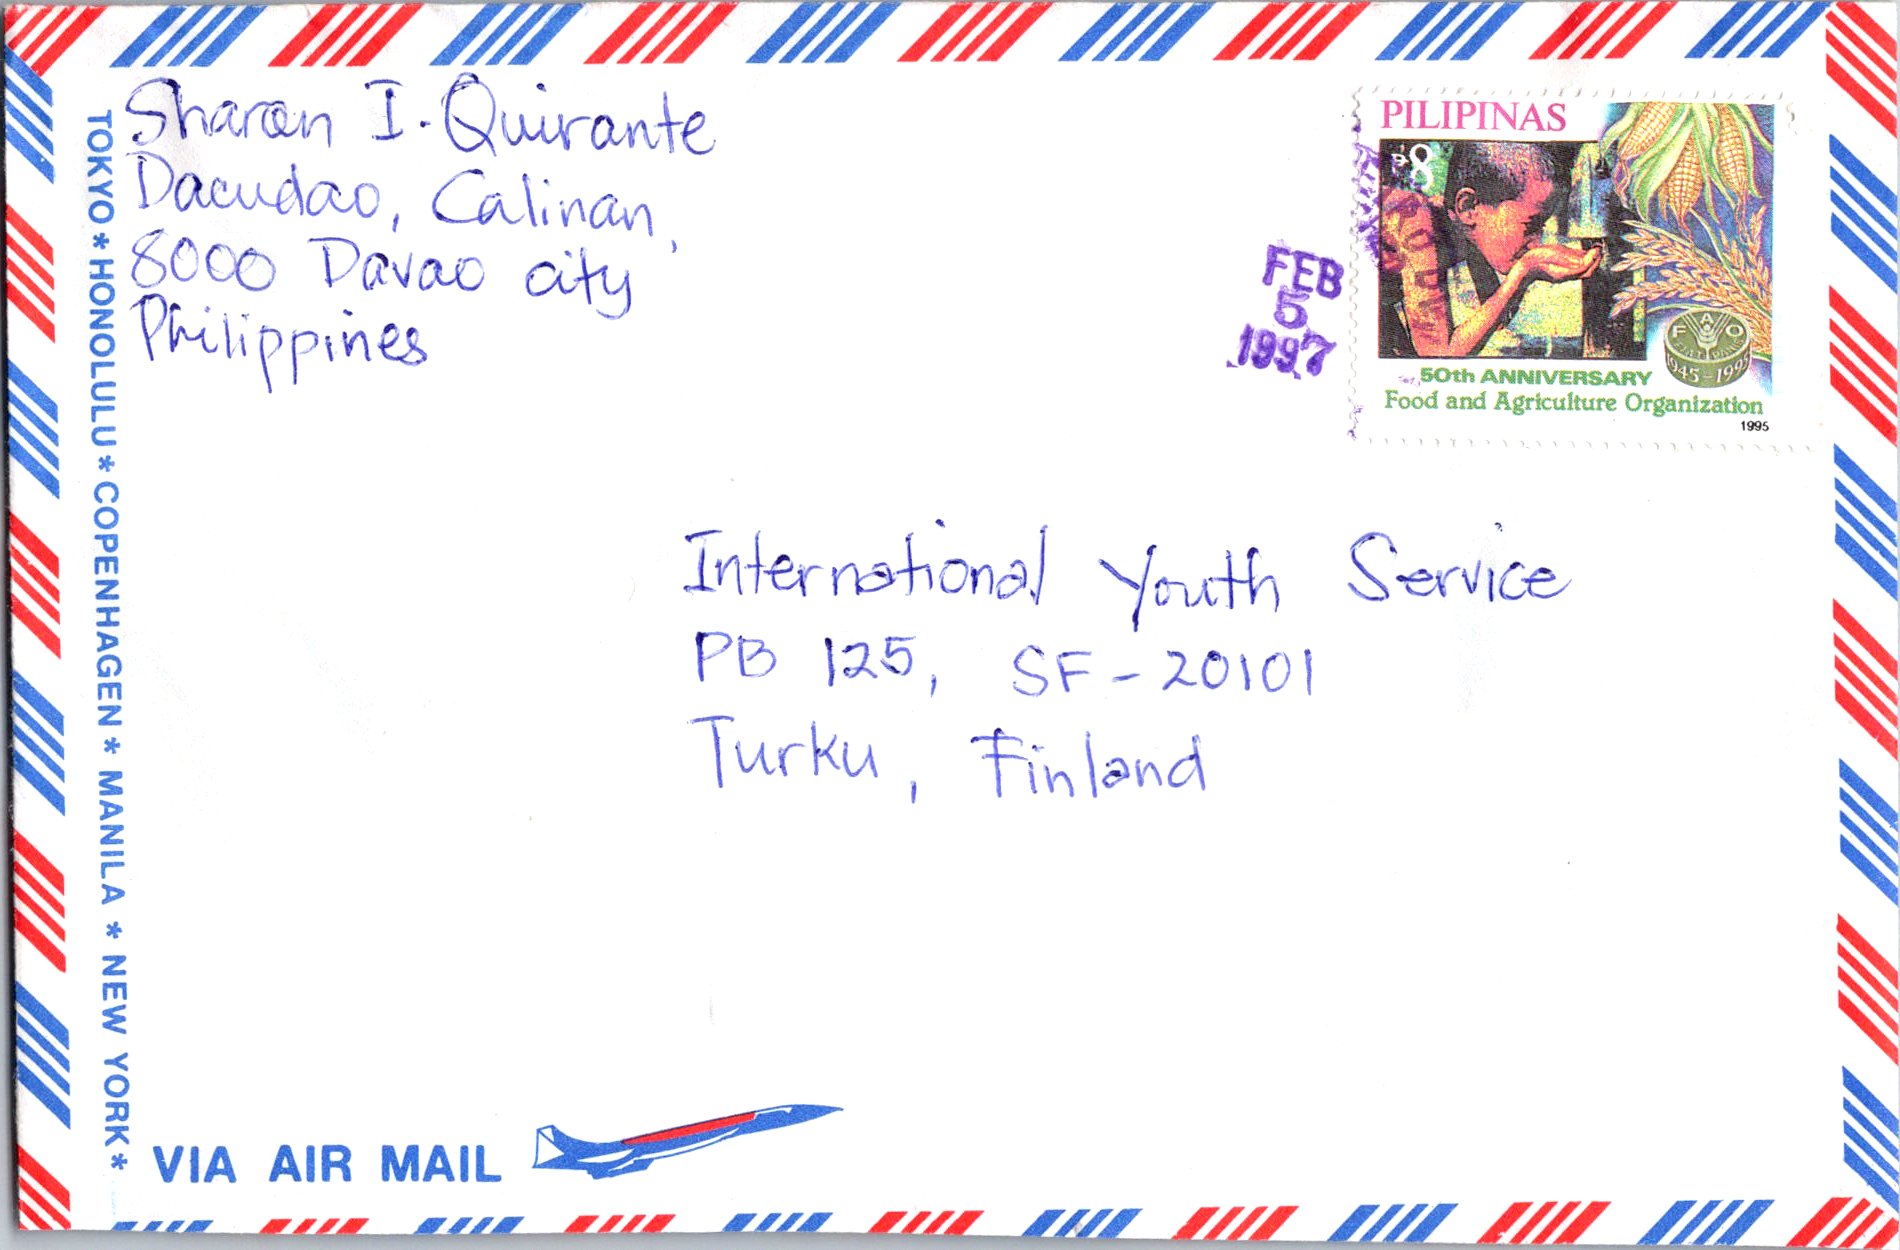 Sharon I. Quirante
Dacudao, Calinan,
8000 Davao city
Philippines
TOKYO * HONOLULU * COPENHAGEN * MANILA * NEW YORK *
PILIPINAS
₱8
FEB
5
1997
FAO
1945-1995
50th ANNIVERSARY
Food and Agriculture Organization
1995
International Youth Service
PB 125, SF-20101
Turku, Finland
VIA AIR MAIL